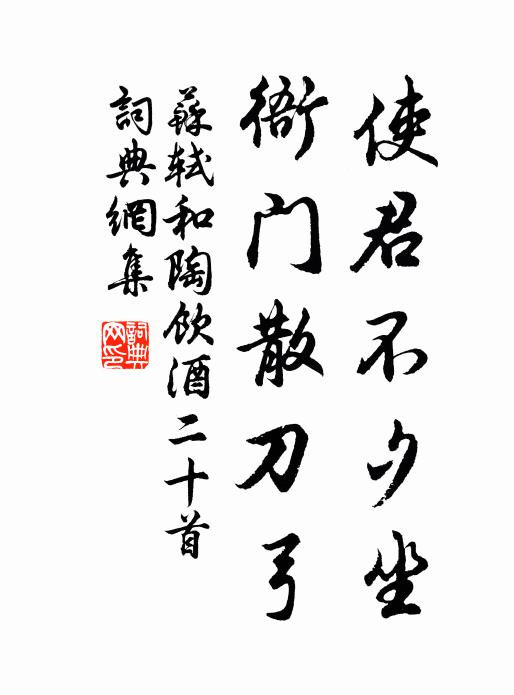 使君不夕坐
衙门散刀弓
蘇軾和陶飲酒二十首
詞典網集
詞典
网印